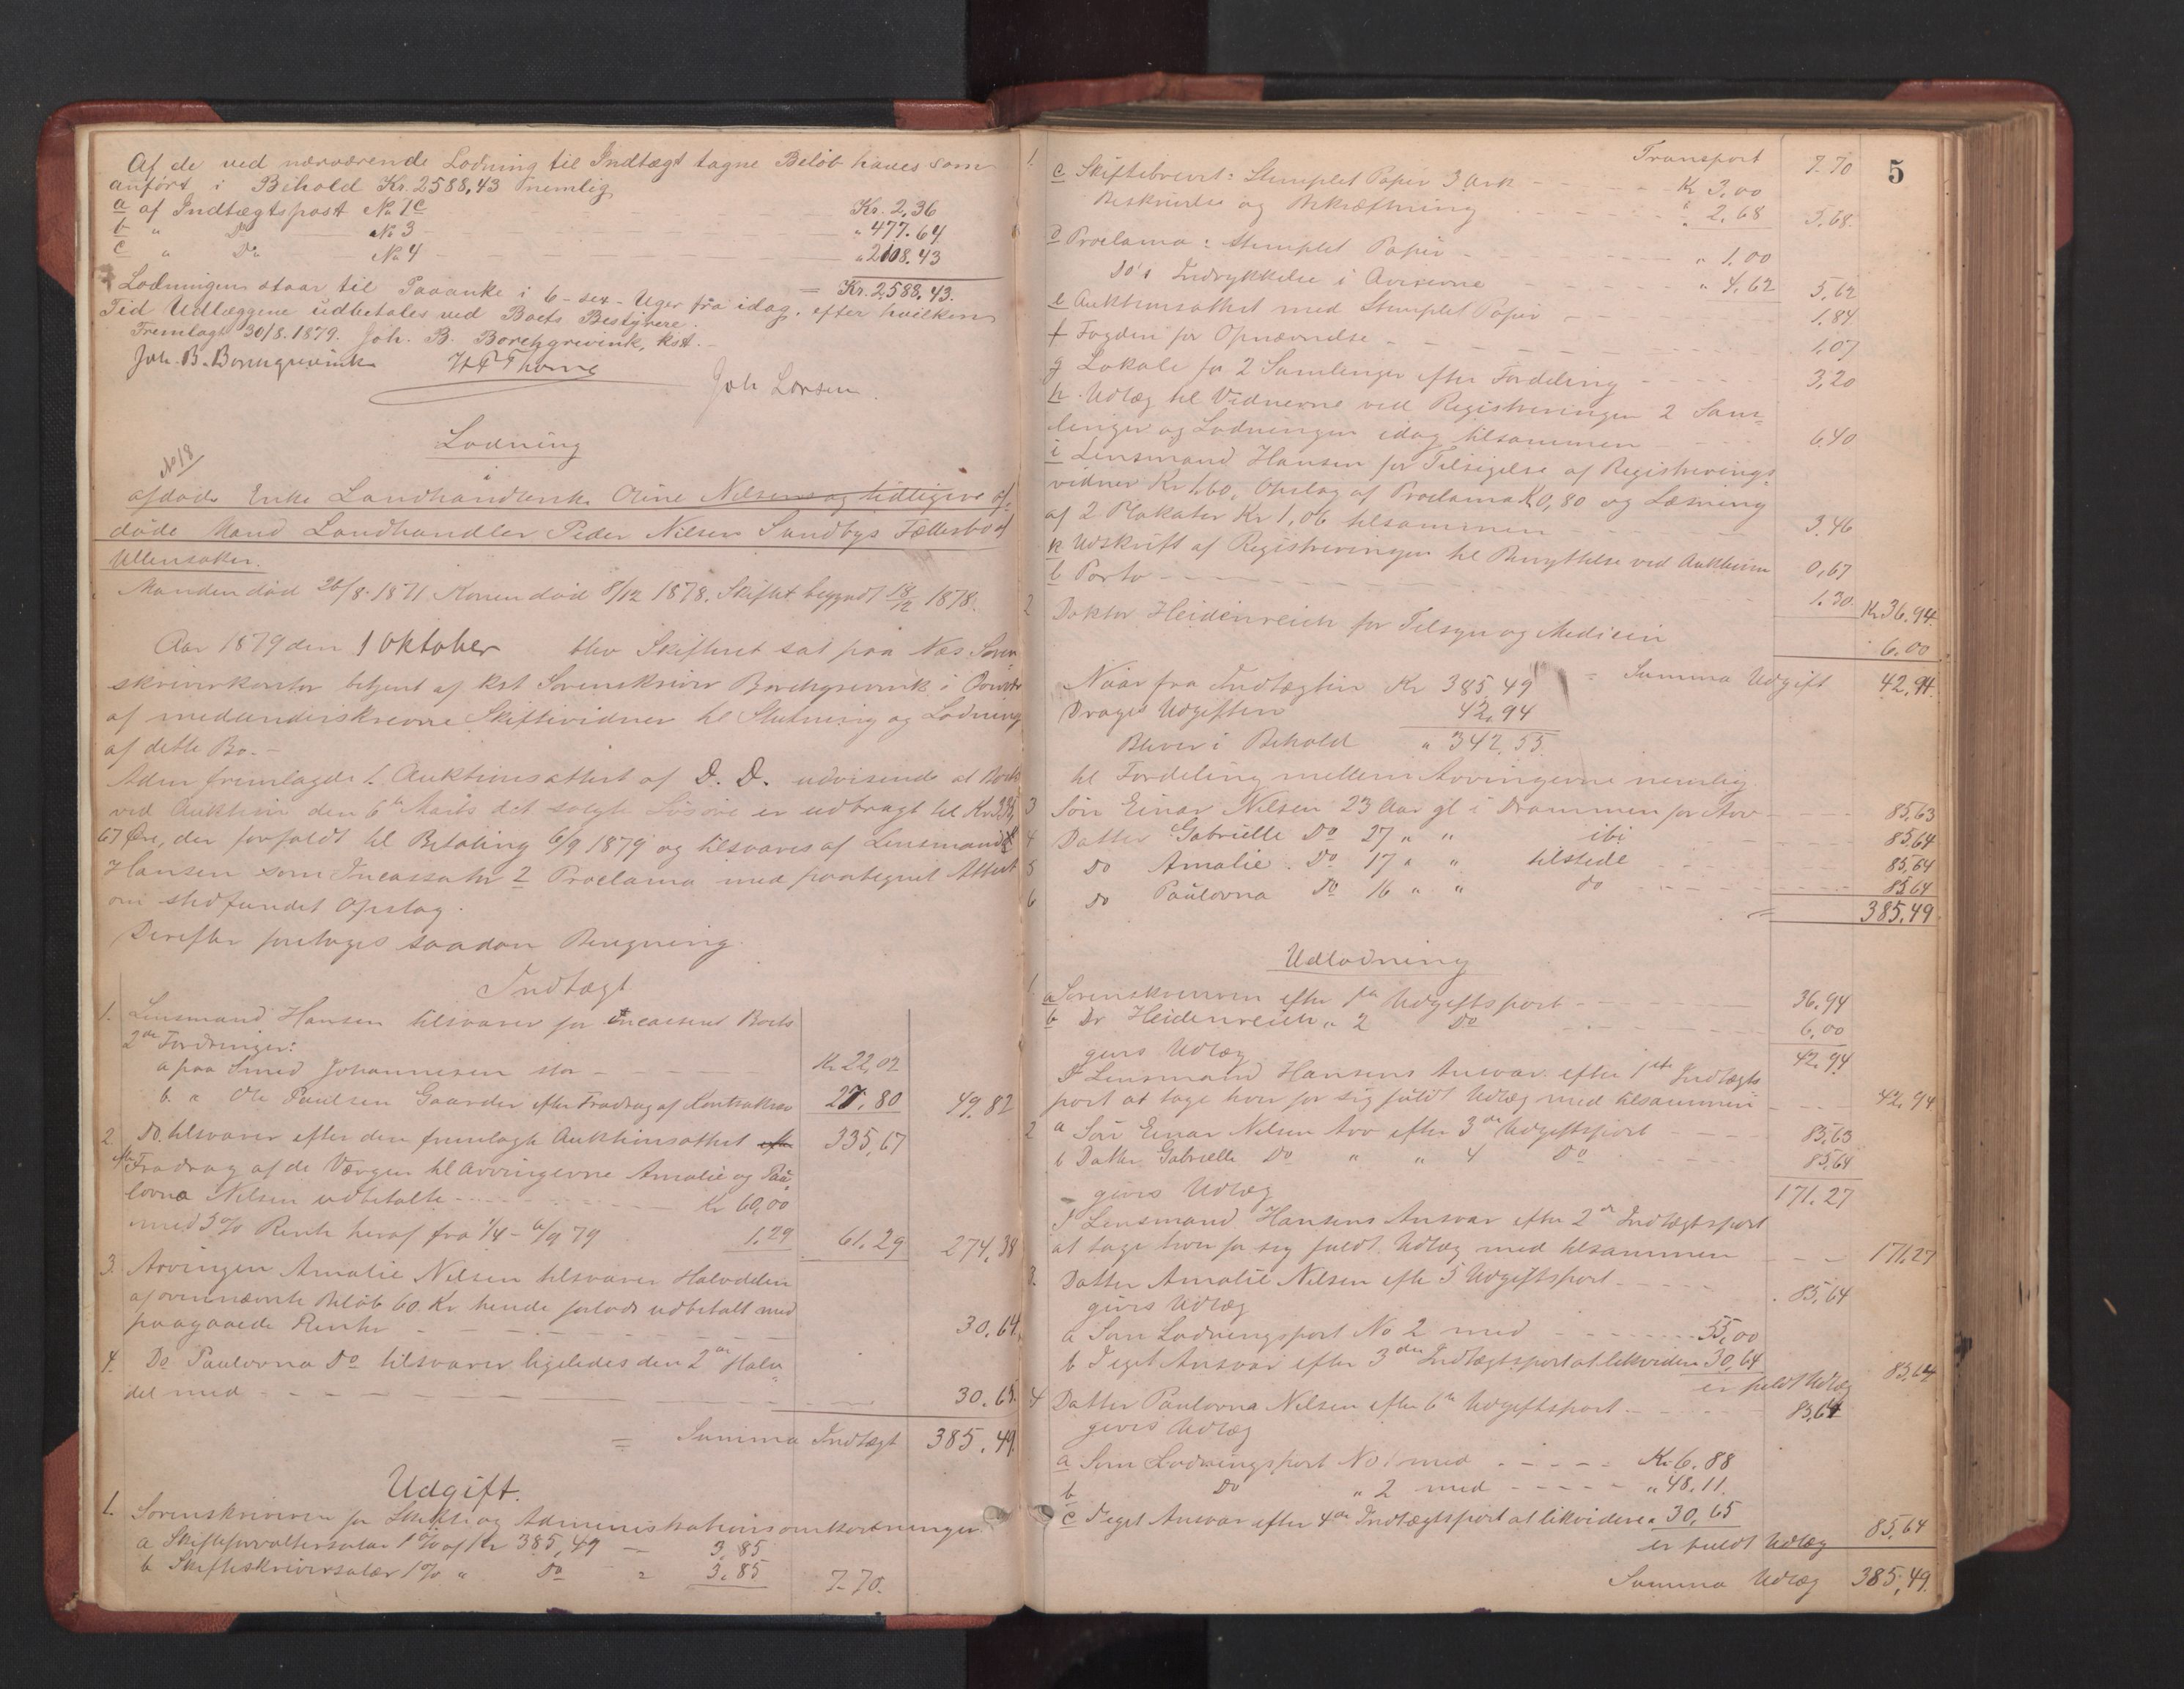 Af de ved nærværende Lodning til Indtægt tagne Beløb haves som
anført i Behold Kr. 2588,43 nemlig
a af Indtægtspost No 1c Kr. 2,36
b " Do No 3 " 477.64
c " Do No 4 " 2108.43
= Kr. 2588,43.
Lodningen staar til Paaanke i 6 - sex - Uger fra idag, efter hvilken
Tid Udlæggene udbetales ved Boets Bestyrere.
Fremlagt 30/8. 1879. Joh. B. Borchgrevink, kst.
Joh. B. Borchgrevink Thorne
Joh Larsen.
Lodning
i
No 18
afdøde Enke Landhandlerske Oline Nielsens og tidligere af-
døde Mand Landhandler Peder Nilsen Sundbys Fællesbo af
Ullensaker.
Manden død 26/8. 1871. Konen død 8/12 1878. Skiftet begyndt 18/12 1878.
Aar 1879 den 1 Oktober blev Skifteret sat paa Nes Soren-
skriverkontor betjent af kst Sorenskriver Borchgrevink i Overvær
af medunderskrevne Skiftevidner til Slutning og Lodning
af dette Bo. -
Aden fremlagde 1. Auktionsattest af D. D. udvisende at Boets
ved Auktion den 6te Marts det solgte Løsøre er udbragt til Kr. 335,
67 Øre, der forfaldt til Betaling 6/9 1879 og tilsvares af Lensmand
Hansen som Incassator 2 Proclama med paategnet Attest
om stedfundet Opslag.
Derefter foretoges saadan Beregning.
Indtægt
1. Lensmand Hansen tilsvarer for incasseret Boets
2de Fordringer:
a paa Smed Johannesen stor Kr 22,02
b. " Ole Paulsen Gaarder efter Fradrag af Kontraktion 27,80 49.82
2. Do. tilsvarer efter den fremlagte Auktionsattest 335,67
efter Fradrag af de Værgen til Arvingerne Amalie og Pau-
lovna Nilsen udbetalte Kr 60,00
med 5 % Rente heraf fra 1/4 - 6/9 79 1.29 61.29 274,38
3. Arvingen Amalie Nilsen tilsvarer Halvdelen
af ovennævnte Beløb 60 Kr. hende forlods udbetalt med
paagaaede Renter 30.64
4. Do Paulovna Do tilsvarer ligeledes den 2den Halv-
del med 30.65
= Summa Indtægt 385.49.
Udgift.
1. Sorenskriveren for Skifte og Administrationsomkostninger.
a Skifteforvaltersalær 1% af Kr 385,49 3,85
b Skifteskriversalær 1% " Do 3.85 7-70.
5
Transport 7-70
1. c Skiftebrevet: Stemplet Papir 3 Ark Kr 3,00
Beskrivelse og Bekræftning " 2,68 5,68.
d Proclama: Stemplet Papir " 1.00
Do's Indrykkelse i Aviserne " 4,62 5,62
e Auktionsattest med Stemplet Papir 1.84
f Fogden for Opnævnelse 1.07
g Lokale for 2 Samlinger efter Fordeling 3,20
h. Udlæg til Vidnerne ved Registreringen 2 Sam-
linger og Lodningen idag tilsammen 6.40
i Lensmand Hansen for Tilsigelse af Registrerings-
vidner Kr 1,60, Opslag af Proclama Kr 0,80 og Læsning
af 2 Plakater Kr 1,06 tilsammen 3.46
k Udskrift af Registreringen til Benyttelse ved Auktionen 0,67
l Porto 1.30. Kr 36,94.
2 Doktor Heidenreich for Tilsyn og Medicin 6.00
= Summa Udgift 42,94.
Naar fra Indtægten Kr 385,49
Drages Udgiften 42,94
Bliver i Behold " 342.55.
til Fordeling mellem Arvingerne nemlig
3 Søn Einar Nilsen 23 Aar gl i Drammen for Arv 85,63
4 Datter Gabrielle Do 27 " " ibi 85,64
5 Do Amalie. Do 17 " " tilstede 85,64
6 Do Paulovna Do 16 " " Do 85,64
= 385.49
Udlodning
1. a Sorenskriveren efter 1ste Udgiftspost 36,94
b Dr Heidenreich " 2 Do 6,00
gives Udlæg 42,94
I Lensmand Hansens Ansvar efter 1ste Indtægts-
post at tage hver for sig fuldt Udlæg med tilsammen 42,94
2 a Søn Einar Nilsen Arv efter 3die Udgiftspost 85,63
b Datter Gabrielle Do " " 4 Do 85,64
gives Udlæg 171.27
I Lensmand Hansens Ansvar efter 2den Indtægtspost
at tage hver for sig fuldt Udlæg med tilsammen 171,27
3. Datter Amalie Nilsen efter 5 Udgiftspost 85,64
gives Udlæg
a Som Lodningspost No 2 med 55,00
b I eget Ansvar efter 3die Indtægtspost at likvidere 30,64
er fuldt Udlæg 85,64
4 Datter Paulovna Nilsen efter 6te Udgiftspost 85,64
gives Udlæg
a Som Lodningspost No 1 med Kr 6.88
b Do " 2 med " 48.11.
c I eget Ansvar efter 4de Indtægtspost at likvidere " 30,65
er fuldt Udlæg 85,64
Summa Udlæg 385,49.